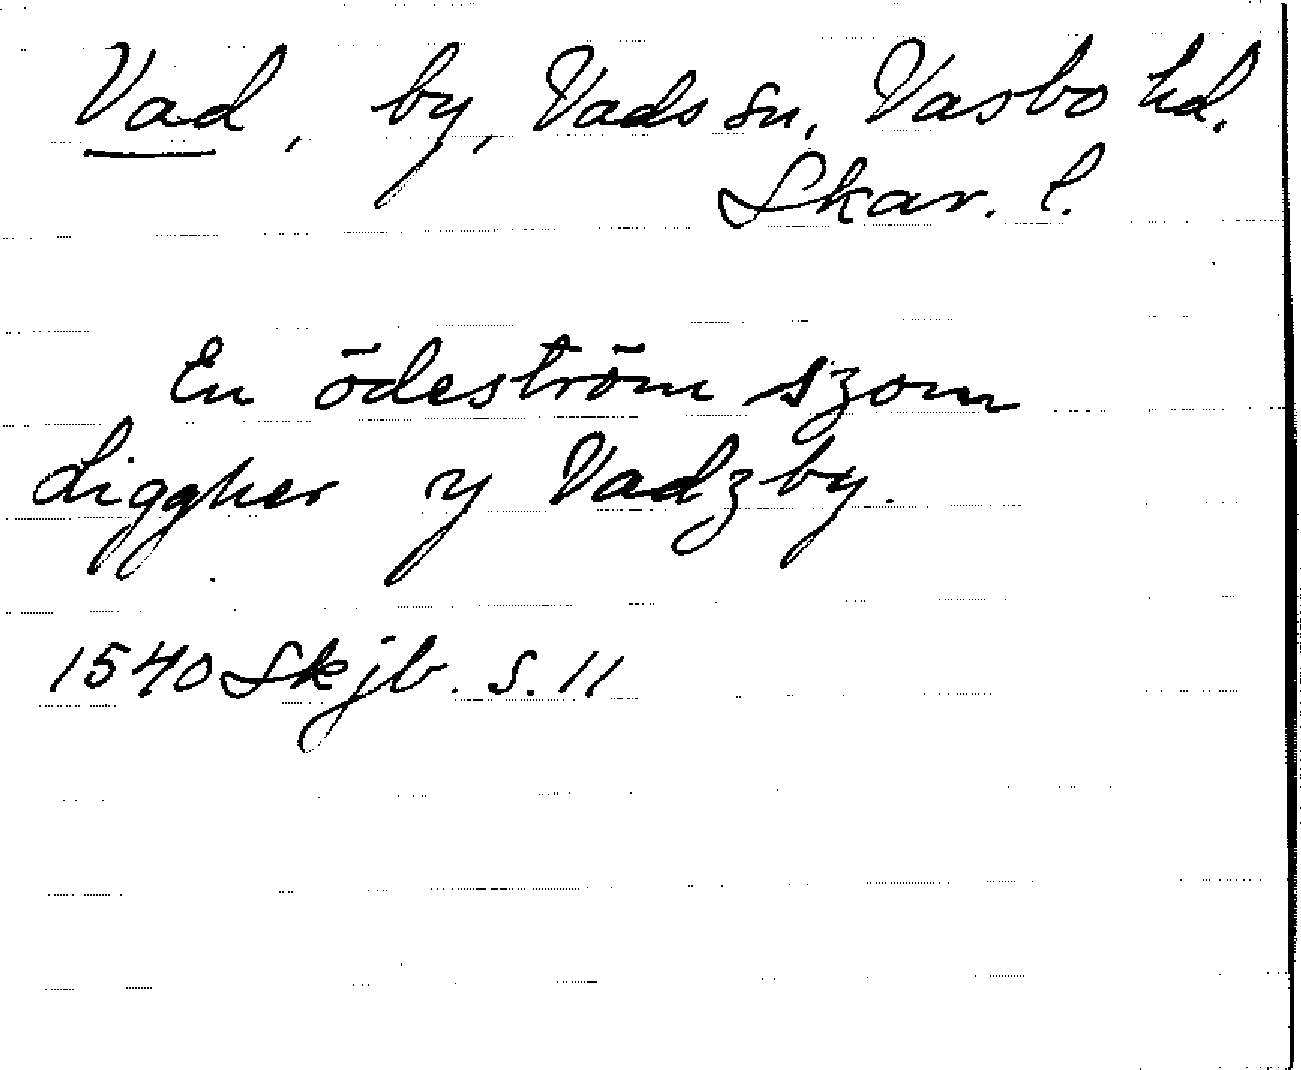 Vad, by, Vads sn, Vasbo hd.
Skar. l.
En ödeström szom
Liggher y Vadzby.
1540 Skjb. s. 11